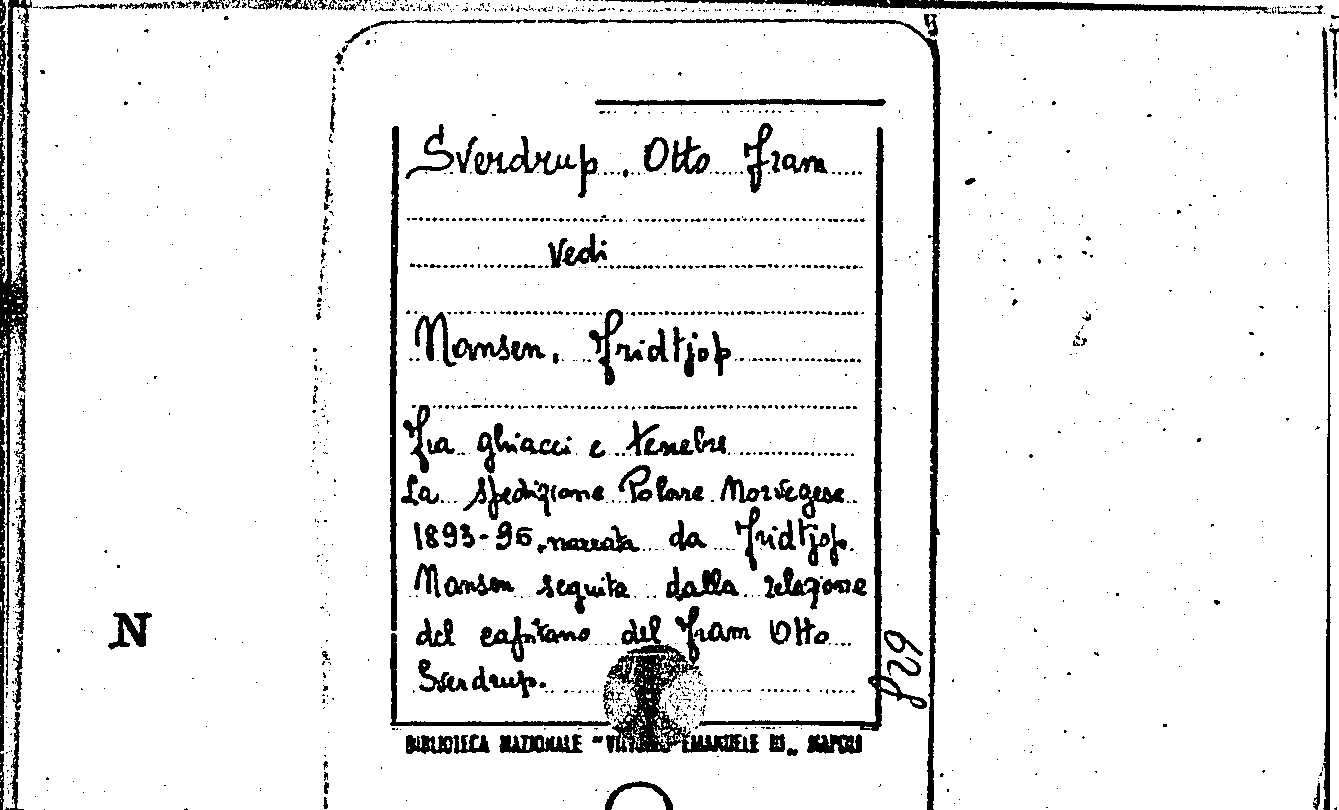 Sverdrup, Otto Fram
Vedi
Nansen, Fridtjop
Fra ghiacci e tenebre
La spedizione Polare Norvegese
1893-96, narrata da Fridtjop
Nansen seguita dalla relazione
del capitano del Fram Otto
Sverdrup.
N
BIBLIOTECA NAZIONALE "VITTORIO EMANUELE III" NAPOLI